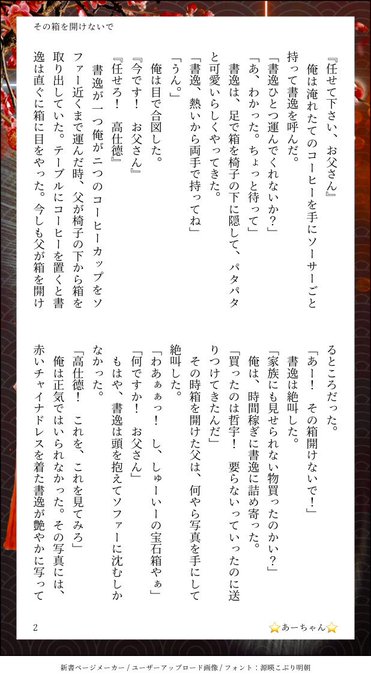 その箱を開けないで
『任せて下さい、お父さん』
　俺は淹れたてのコーヒーを手にソーサーごと
持って書逸を呼んだ。
「書逸ひとつ運んでくれないか？」
「あ、わかった。ちょっと待って」
　書逸は、足で箱を椅子の下に隠して、パタパタ
と可愛いらしくやってきた。
「書逸、熱いから両手で持ってね」
「うん。」
　俺は目で合図した。
『今です！　お父さん』
『任せろ！　高仕德』
　書逸が一つ俺が二つのコーヒーカップをソ
ファー近くまで運んだ時、父が椅子の下から箱を
取り出していた。テーブルにコーヒーを置くと書
逸は直ぐに箱に目をやった。今しも父が箱を開け
るところだった。
「あー！　その箱開けないで！」
　書逸は絶叫した。
「家族にも見せられない物買ったのかい？」
　俺は、時間稼ぎに書逸に詰め寄った。
「買ったのは哲宇！　要らないっていったのに送
りつけてきたんだ」
　その時箱を開けた父は、何やら写真を手にして
絶叫した。
「わあぁぁっ！　し、しゅーいーの宝石箱やぁ」
「何ですか！　お父さん」
　もはや、書逸は頭を抱えてソファーに沈むしか
なかった。
「高仕德！　これを、これを見てみろ」
　俺は正気ではいられなかった。その写真には、
赤いチャイナドレスを着た書逸が艶やかに写って
2
⭐あーちゃん⭐
新書ページメーカー / ユーザーアップロード画像 / フォント：源暎こぶり明朝